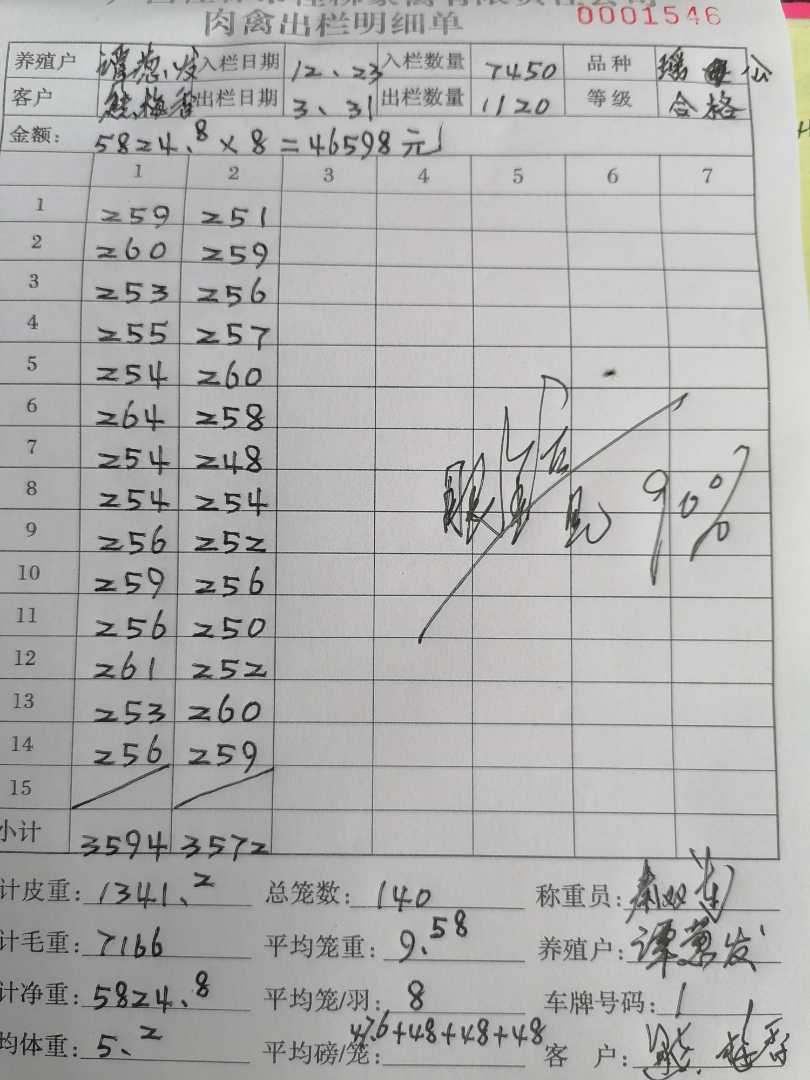 肉禽出栏明细单 0001546
养殖户 谭葱发 入栏日期 12、23 入栏数量 7450 品种 瑶 公
客户 熊梅香 出栏日期 3、31 出栏数量 1120 等级 合格
金额: 5824.8 × 8 = 46598元
1 2 3 4 5 6 7
1 259 251
2 260 259
3 253 256
4 255 257
5 254 260
6 264 258
7 254 248
8 254 254
9 256 252
10 259 256
11 256 250
12 261 252
13 253 260
14 256 259
15
小计 3594 3572
90%
计皮重: 1341.2 总笼数: 140 称重员:
计毛重: 7166 平均笼重: 9.58 养殖户: 谭葱发
计净重: 5824.8 平均笼/羽: 8 车牌号码: 1
均体重: 5.2 平均磅/笼: 47.6+48+48+48 客 户: